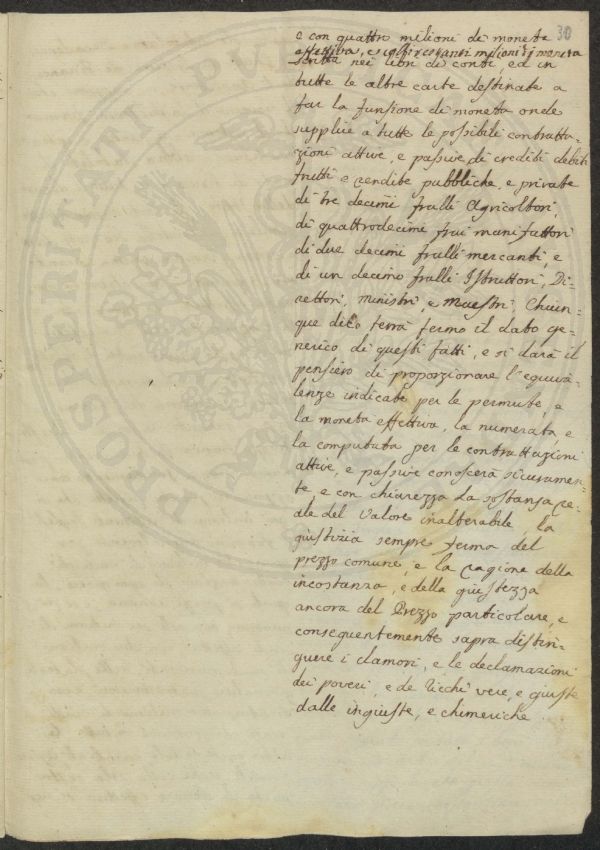 30
e con quattro milioni di moneta
effettiva, e colli restanti milioni di moneta
scritta nei libri di conti, ed in
tutte le altre carte destinate a
far la funsione di moneta onde
supplire a tutte le possibili contratta=
zioni attive, e passive di crediti debiti
frutti e rendite pubbliche, e private
di tre decimi fralli Agricoltori,
di quattrodecimi frai manifattori
di due decimi fralli mercanti e
di un decimo fralli Istruttori, Di=
rettori, ministri, e Maestri. Chiun=
que dico terrà fermo il dato ge=
nerico di questi fatti, e si darà il
pensiero di proporzionare l'equiva=
lenze indicate per le permute, e
la moneta effettiva, la numerata, e
la computata per le contrattazioni
attive, e passive conoscerà sicuramen=
te, e con chiarezza la sostanza re=
ale del valore inalterabile, la
giustizia sempre ferma del
prezzo comune, e la ragione della
incostanza, e della giustezza
ancora del Prezzo particolare, e
conseguentemente saprà distin=
guere i clamori, e le declamazioni
dei poveri, e de ricchi vere, e giuste
dalle ingiuste, e chimeriche.
PROSPERITATI PUBL